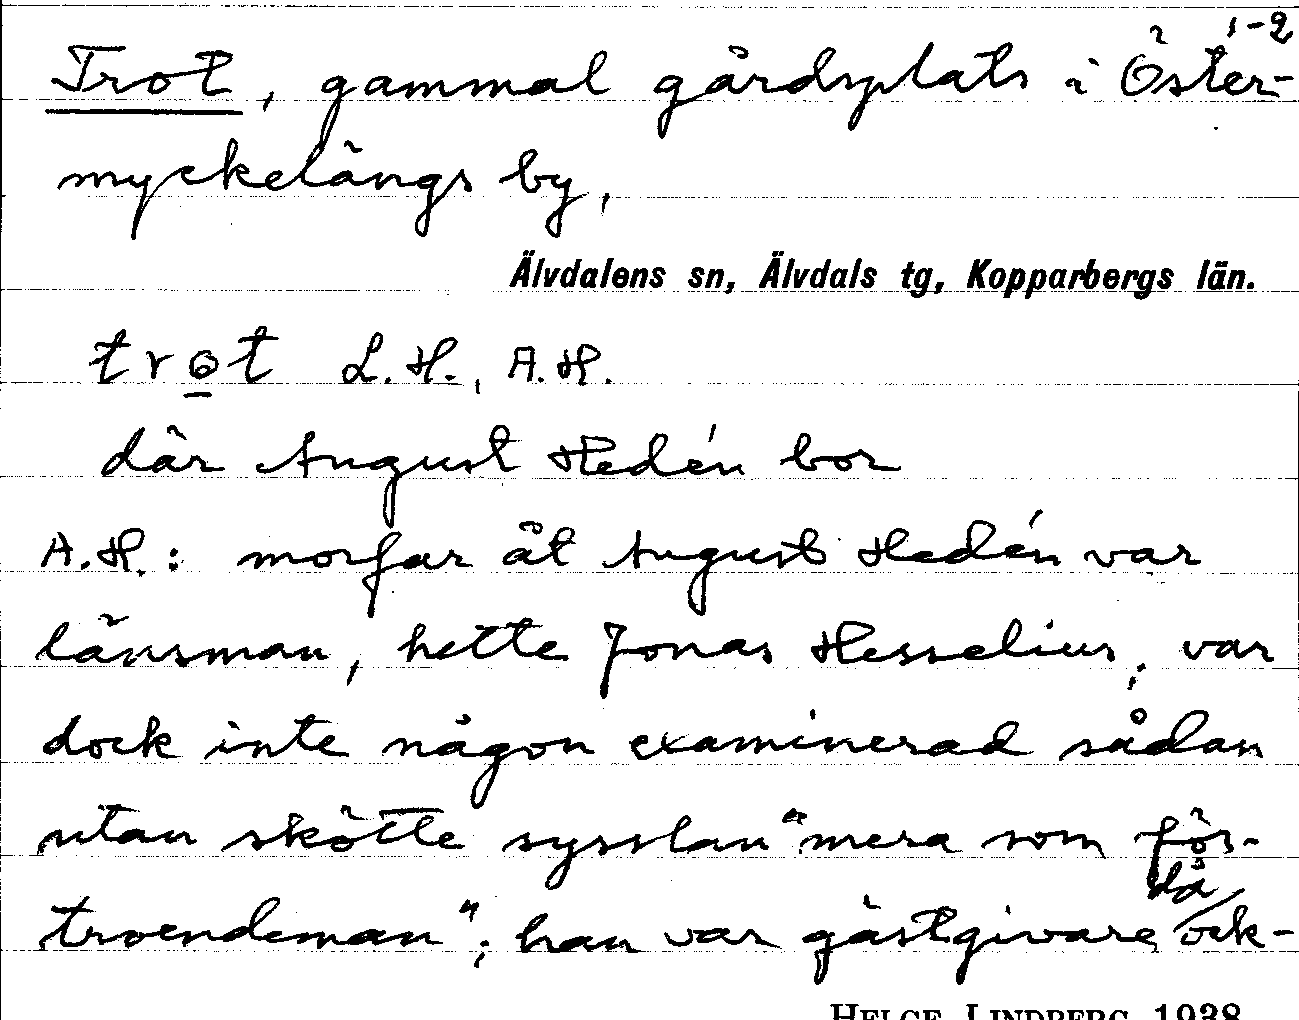 1-2
Trot, gammal gårdsplats i Öster-
myckelängs by,
Älvdalens sn, Älvdals tg, Kopparbergs län.
trot L.H., A.H.
där August Hedén bor
A.H.: morfar åt August Hedén var
länsman, hette Jonas Hesselius, var
dock inte någon examinerad sådan
utan skötte sysslan "mera som för-
troendeman"; han var gästgivare då ock-
HELGE LINDBERG 1938